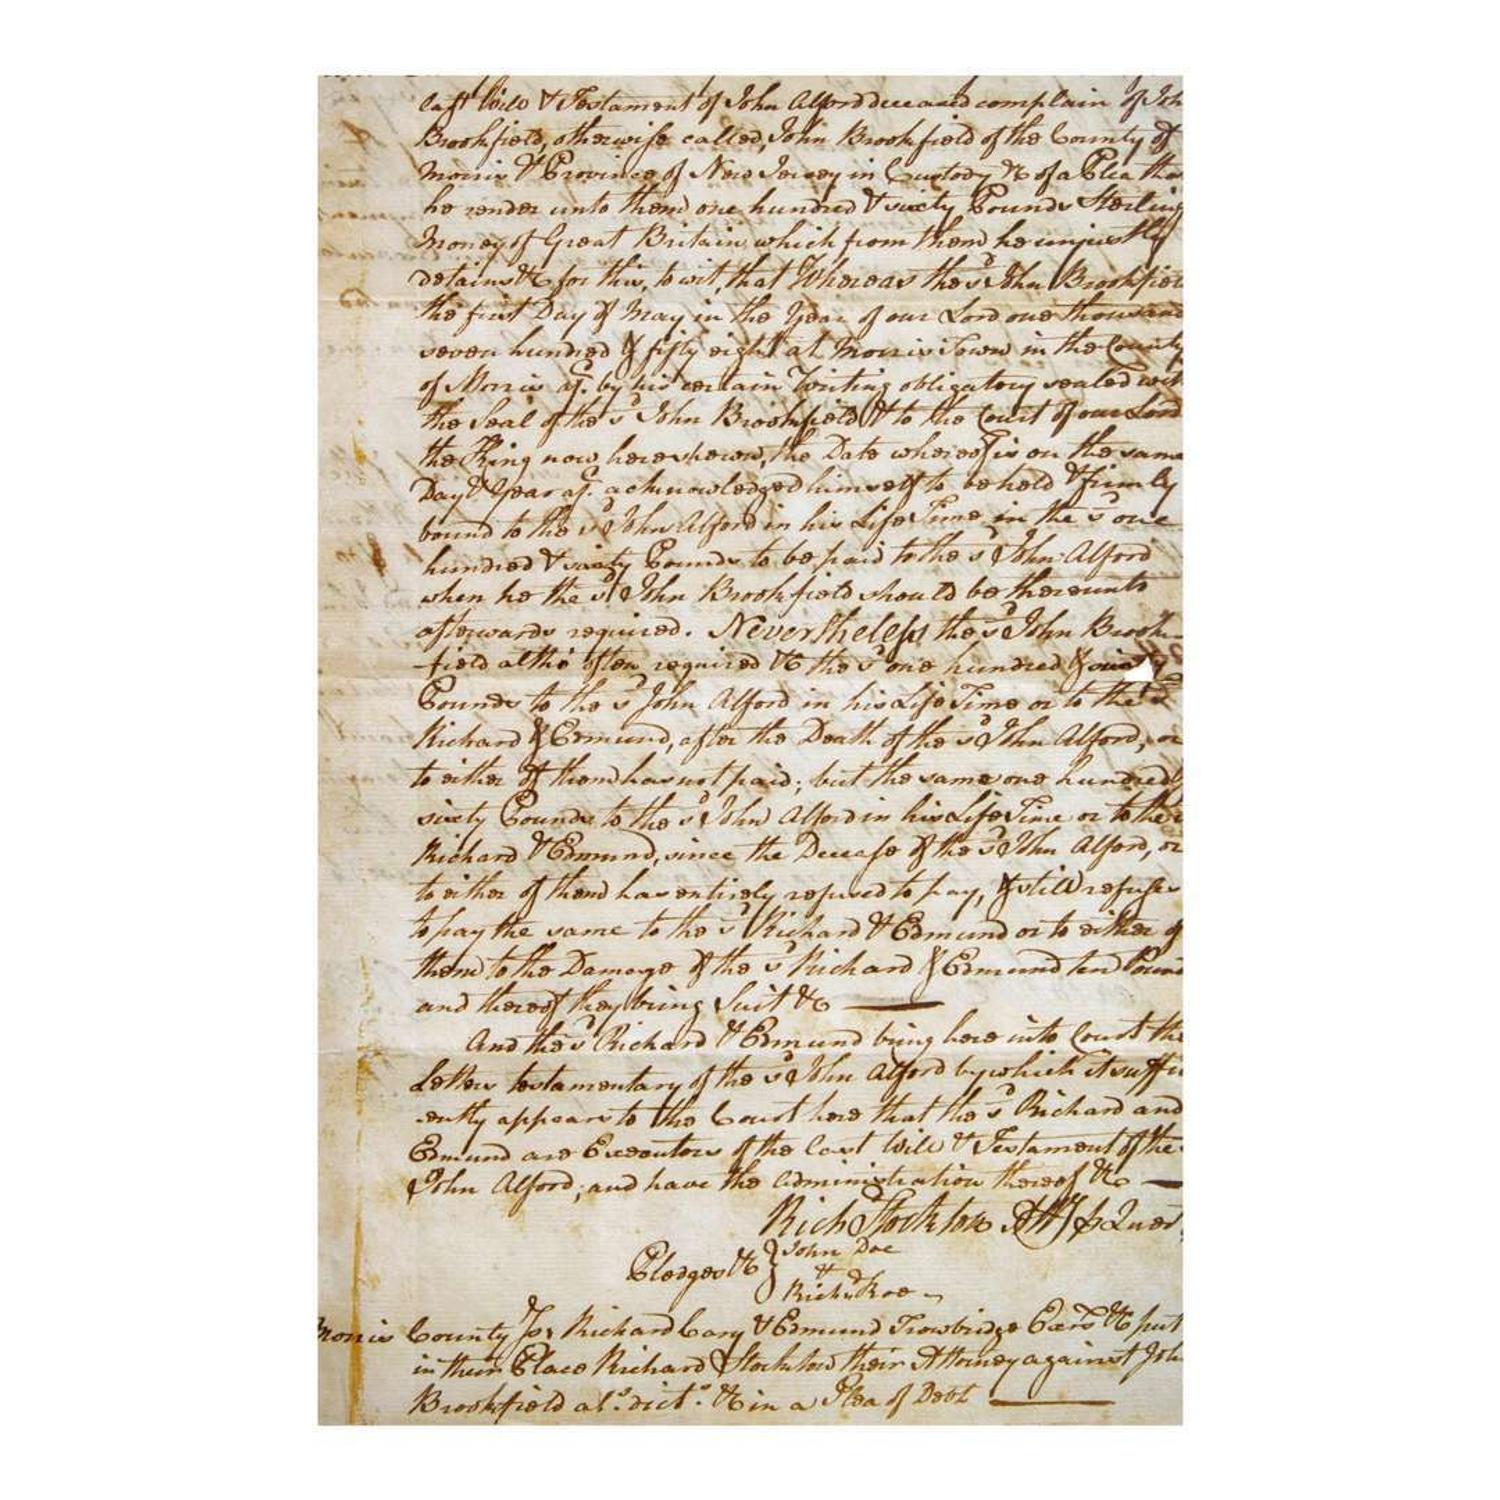 last Will & Testament of John Alford deceased complain of Joh
Brookfield, otherwise called, John Brookfield of the County of
Morris & Province of New Jersey in Custody &c of a Plea tha
he render unto them one hundred & sixty Pounds Sterling
Money of Great Britain, which from them he unjustly
detains &c for this, to wit, that Whereas the sd John Brookfiel
the first Day of May in the Year of our Lord one thousand
seven hundred & fifty eight at Morris Town in the County
of Morris afd. by his certain Writing obligatory sealed with
the Seal of the sd John Brookfield & to the Court of our Lord
the King now here shewn, the Date whereof is on the same
Day & Year afd. acknowledged himself to be held & firmly
bound to the sd John Alford in his Life Time in the sd one
hundred & sixty Pounds to be paid to the sd John Alford
when he the sd John Brookfield should be thereunto
afterwards required. Nevertheless the sd John Brook-
-field altho' often required &c the sd one hundred & sixty
Pounds to the sd John Alford in his Life Time or to the sd
Richard & Edmund, after the Death of the sd John Alford, or
to either of them has not paid; but the same one hundred
sixty Pounds to the sd John Alford in his Life Time or to the s
Richard & Edmund, since the Decease of the sd John Alford, or
to either of them has entirely refused to pay, & still refuses
to pay the same to the sd Richard & Edmund or to either of
them to the Damage of the sd Richard & Edmund ten Pound
and thereof they bring Suit &c
And the sd Richard & Edmund bring here into Court the
Letters testamentary of the sd John Alford by which it suffici
-ently appears to the Court here that the sd Richard and
Edmund are Executors of the last Will & Testament of the
John Alford; and have the administration thereof &c
Rich Stockton Atty p Quer
Pledges &c } John Doe
&
Richd Roe
Morris County Ss. Richard Cary & Edmund Trowbridge Exrs &c put
in their Place Richard Stockton their Attorney against Joh
Brookfield als. dict. &c in a Plea of Debt